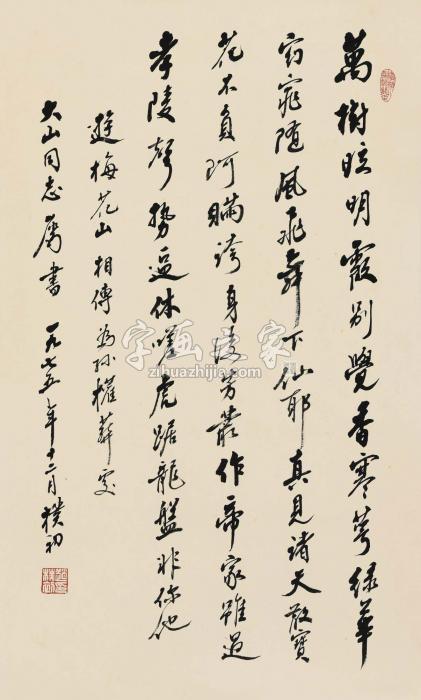 萬樹眩明霞別覺香寒萼绿華
窈窕随風飛舞下仙耶真見諸天散寶
花不負阿瞞誇身後芳叢作帝家雖過
孝陵聲勢休嗟虎踞龍盤非你他
遊梅花山相傳為孫權葬處
大山同志属書 一九七五年十二月 樸初
字画之家
zihuazhijia.com